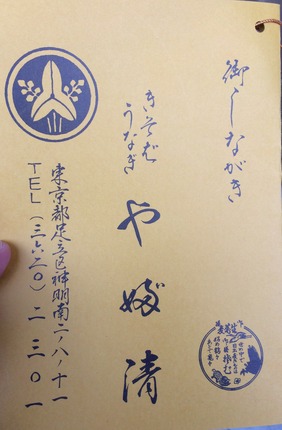 御しながき
きそば
うなぎ
や婦清
東京都足立区神明南二ノ八ノ十一
TEL(三六二〇)二三〇一